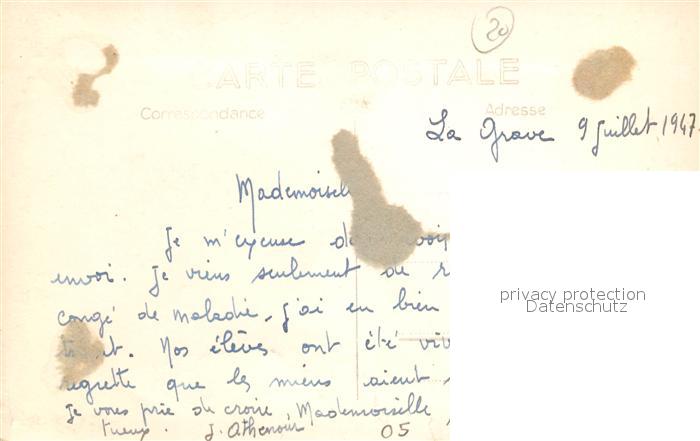 20
CARTE POSTALE
Correspondance
Adresse
La Grave 9 Juillet 1947.
Mademoisel
Je m'excuse
envoi. Je viens seulement de
congé de maladie, j'ai eu bien
Nos élèves ont été
regrette que les miens aient
Je vous prie de croire, Mademoiselle,
tueux. J. Athenour
05
privacy protection
Datenschutz